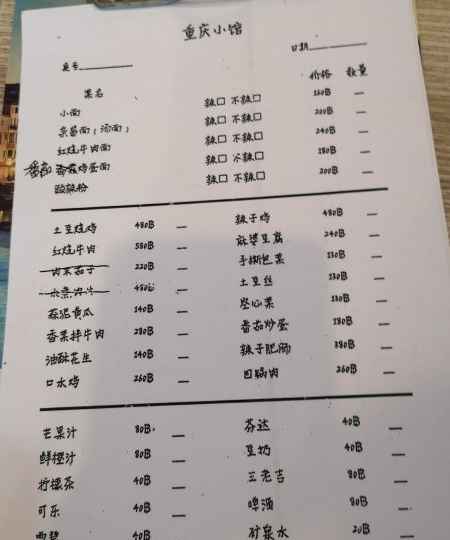 重庆小馆
桌号 日期
菜名 价格 数量
小面 辣□ 不辣□ 160B
宗昌面(汤面) 辣□ 不辣□ 200B
红烧牛肉面 辣□ 不辣□ 240B
番茄鸡蛋面 辣□ 不辣□ 180B
酸辣粉 辣□ 不辣□ 200B
土豆烧鸡 480B 辣子鸡 480B
红烧牛肉 580B 麻婆豆腐 240B
肉末茄子 220B 手撕包菜 130B
水煮肉片 480B 土豆丝 130B
蒜泥黄瓜 140B 空心菜 130B
香菜拌牛肉 280B 番茄炒蛋 180B
油酥花生 140B 辣子肥肠 380B
口水鸡 260B 回锅肉 260B
芒果汁 80B 芬达 40B
鲜橙汁 80B 豆奶 40B
柠檬茶 40B 王老吉 80B
可乐 40B 啤酒 80B
雪碧 40B 矿泉水 20B